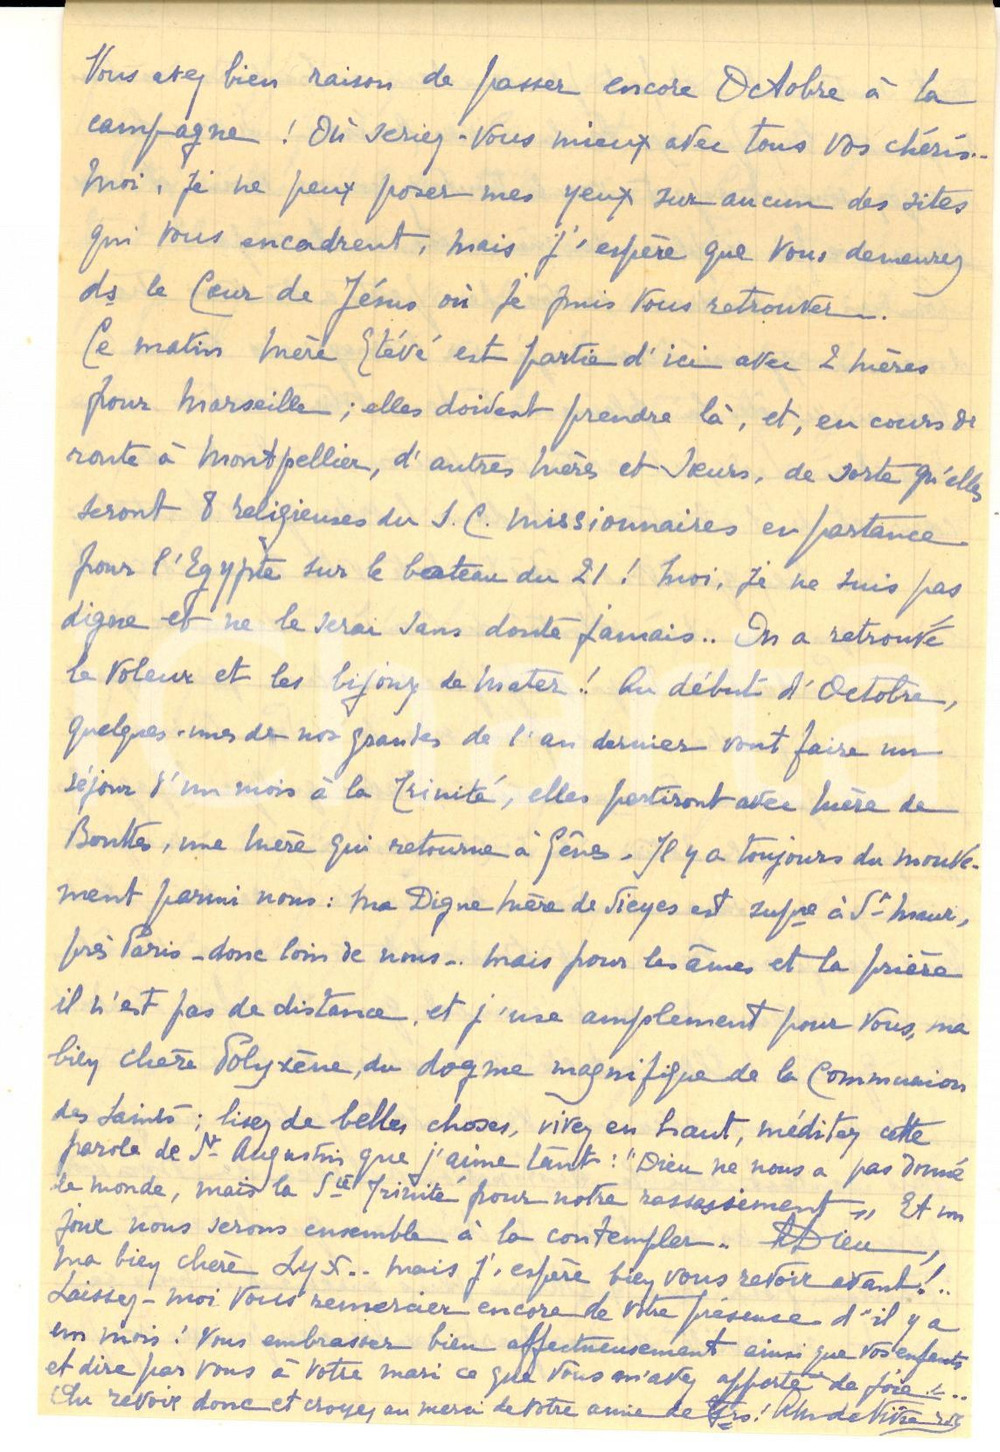 Vous avez bien raison de passer encore Octobre à la
campagne ! Où seriez-vous mieux avec tous vos chéris..
Moi, je ne peux poser mes yeux sur aucun des sites
qui vous encadrent, mais j'espère que vous demeurez
ds le Cœur de Jésus où je puis vous retrouver.
Ce matin Mère Etévé est partie d'ici avec 2 Mères
pour Marseille ; elles doivent prendre là, et, en cours de
route à Montpellier, d'autres Mères et Sœurs, de sorte qu'elles
seront 8 religieuses du S. C. missionnaires en partance
pour l'Egypte sur le bateau du 21 ! Moi, je ne suis pas
digne et ne le serai sans doute jamais.. On a retrouvé
le voleur et les bijoux de Mater ! Au début d'Octobre,
quelques-unes de nos grandes de l'an dernier vont faire un
séjour d'un mois à la Trinité, elles partiront avec Mère de
une Mère qui retourne à Gênes. Il y a toujours du mouve-
ment parmi nous : ma Digne Mère de Sieyes est supre à St Maur,
près Paris - donc loin de nous.. Mais pour les âmes et la prière
il n'est pas de distance, et j'use amplement pour vous, ma
bien chère Polyxène, du dogme magnifique de la Communion
des Saints ; lisez de belles choses, vivez en haut, méditez cette
parole de St Augustin que j'aime tant : "Dieu ne nous a pas donné
le monde, mais la Ste Trinité pour notre rassasiement" Et un
jour nous serons ensemble à la contempler.. A Dieu,
ma bien chère Lyx.. mais j'espère bien vous revoir avant !..
Laissez-moi vous remercier encore de votre présence d'il y a
un mois ! Vous embrasser bien affectueusement ainsi que vos enfants
et dire par vous à votre mari ce que vous m'avez apporté de joie !..
Au revoir donc et croyez au merci de votre amie de